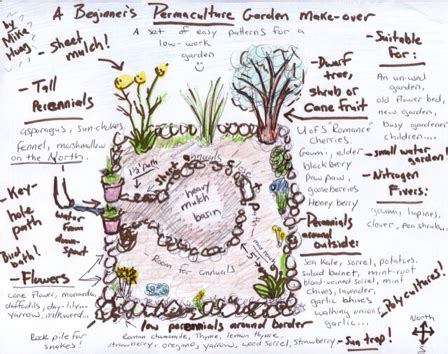 A Beginner's Permaculture Garden make-over
by Mike Hoag
A set of easy patterns for a
low-work
garden
- sheet mulch!
- Tall
Perennials
asparagus, sun-chokes
fennel, mushmallow
on the North.
- Key-
hole
path
water
from
down-
spout
- Flowers
cone flower, monarda,
daffodils, day-lily...
yarrow, milkweed...
Rock pile for
snakes!
1½' path
annuals
heavy
mulch
basin
- Room for annuals
5'
low perennials around border
Roman chamomile, thyme, lemon thyme,
strawberry, oregano, yarrow, wood sorrel, strawberry
- Dwarf
tree,
shrub or
Cane Fruit
U of S "Romance"
cherries,
Goumi, elder
blackberry
paw paw,
gooseberries
Honey berry
Perennials
around
outside:
Sea Kale, sorrel, potatoes,
salad burnet, mint-root
blood-veined sorrel, mint
chives, lavender,
garlic chives
walking onions
garlic...
- Suitable
For:
An un-used
garden,
old flower bed,
new garden,
busy gardener
children...
- small water garden!
- Nitrogen
Fixers:
goumi, lupines,
clover, pea shrub...
Polycultures!
North
South
- Sun trap!